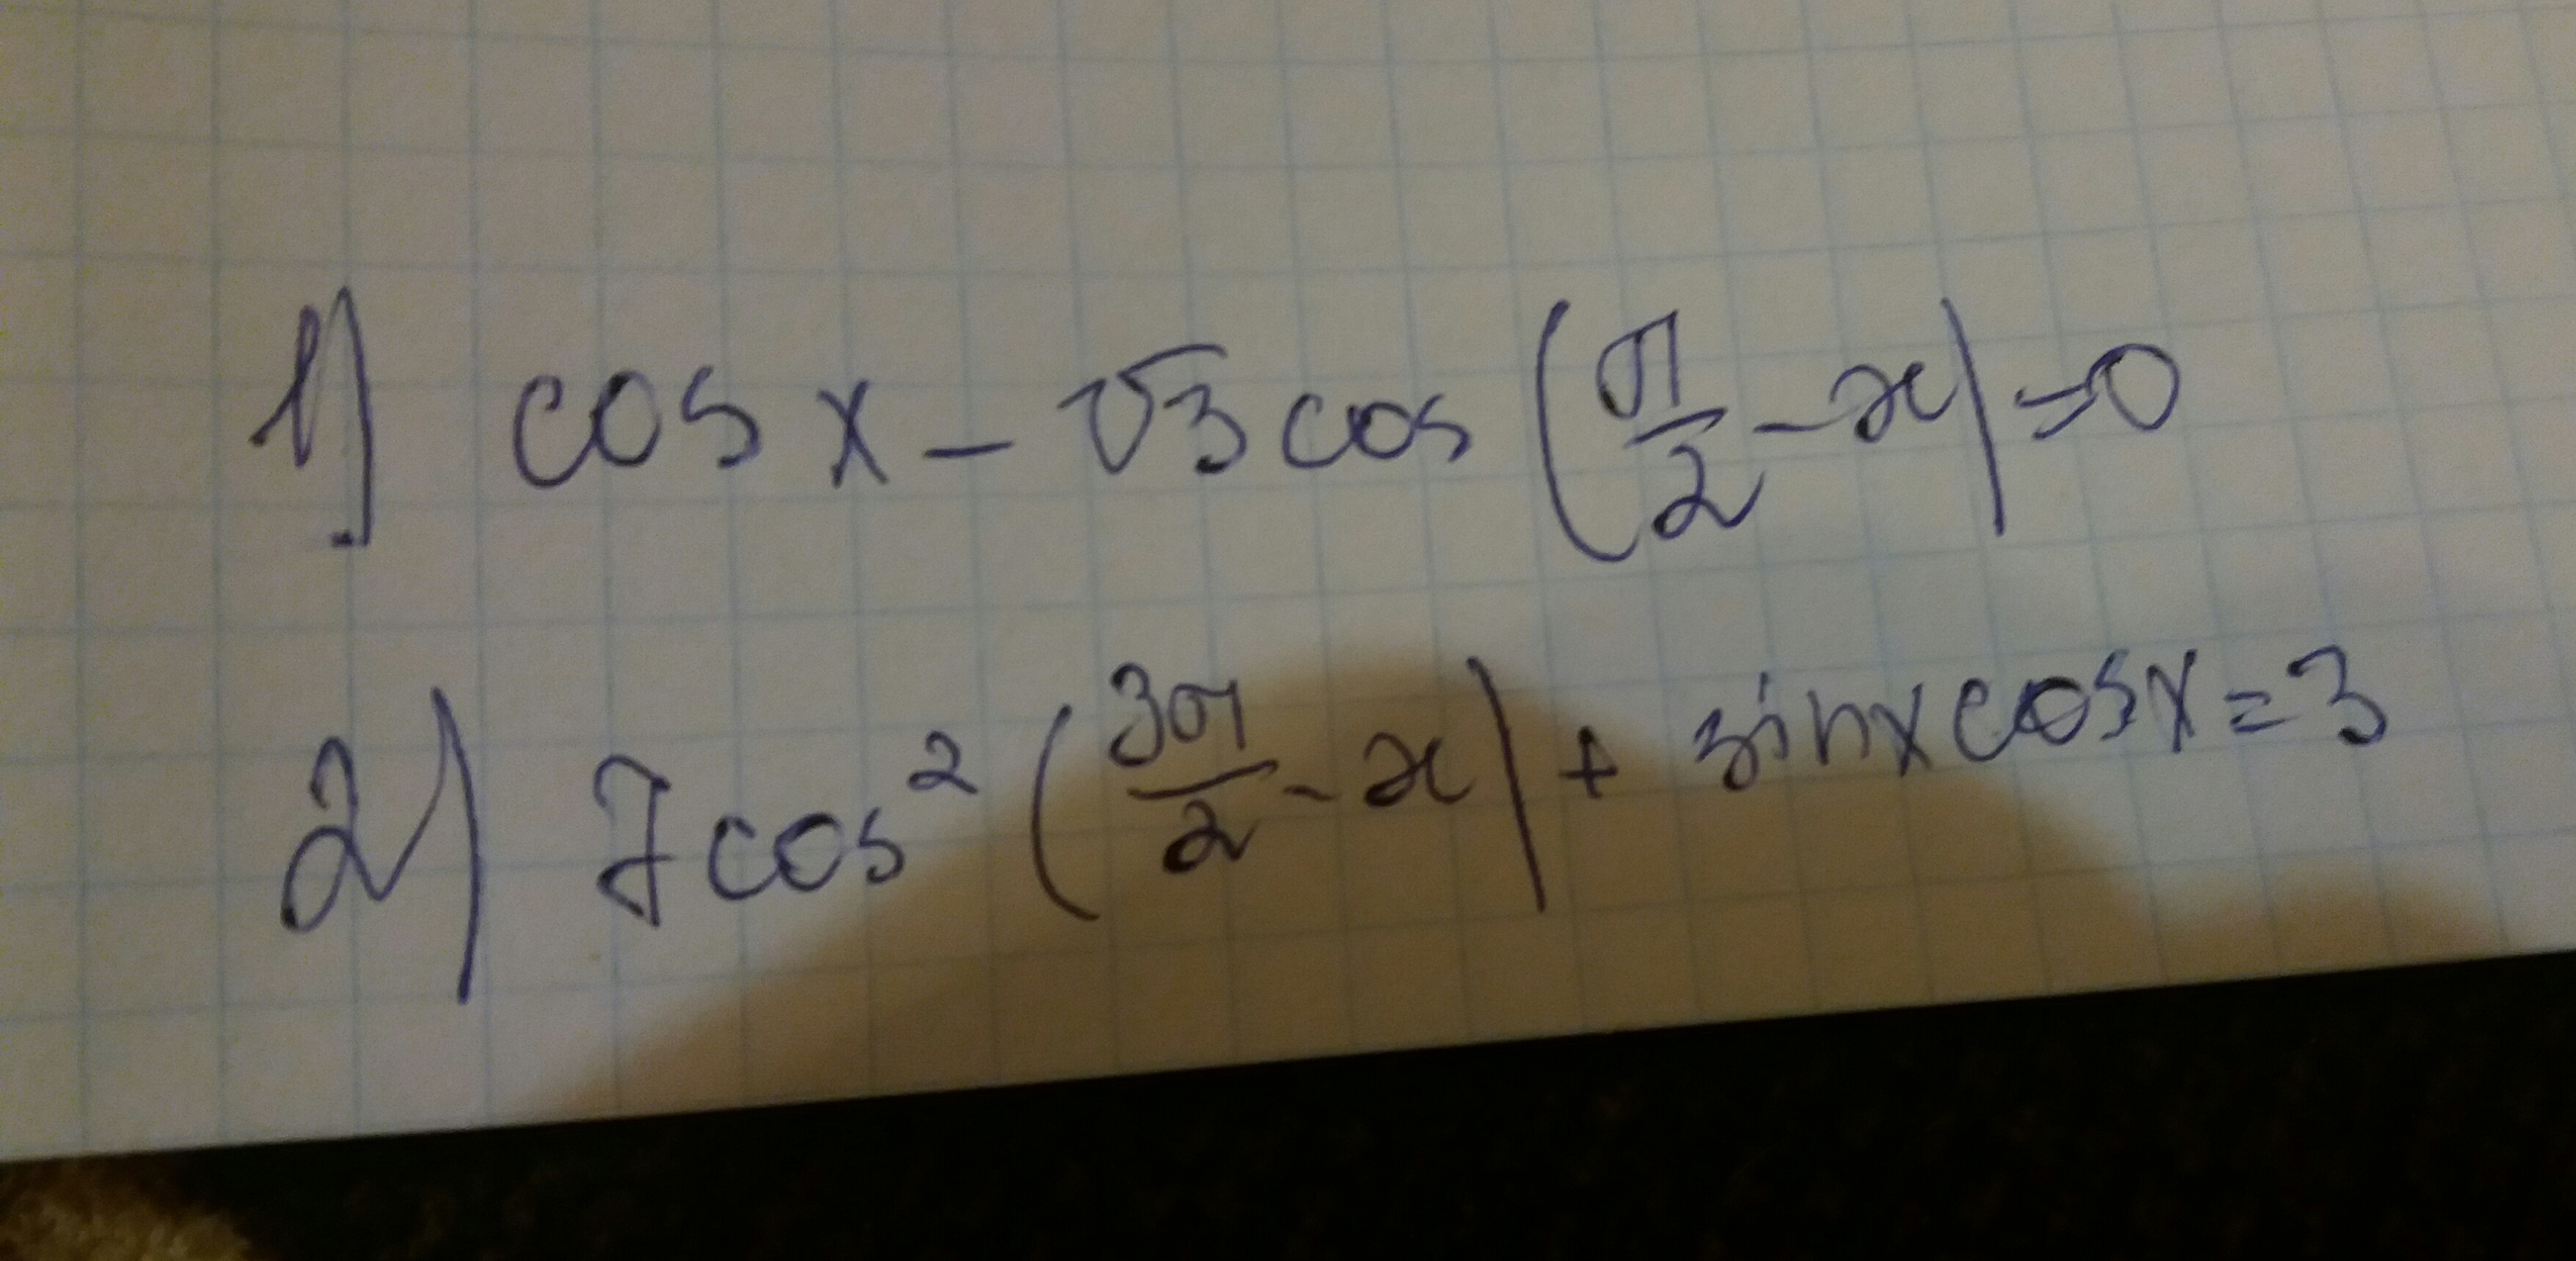 1) cos x - √3 cos (π/2 - x) = 0
2) 7 cos² (3π/2 - x) + sin x cos x = 3